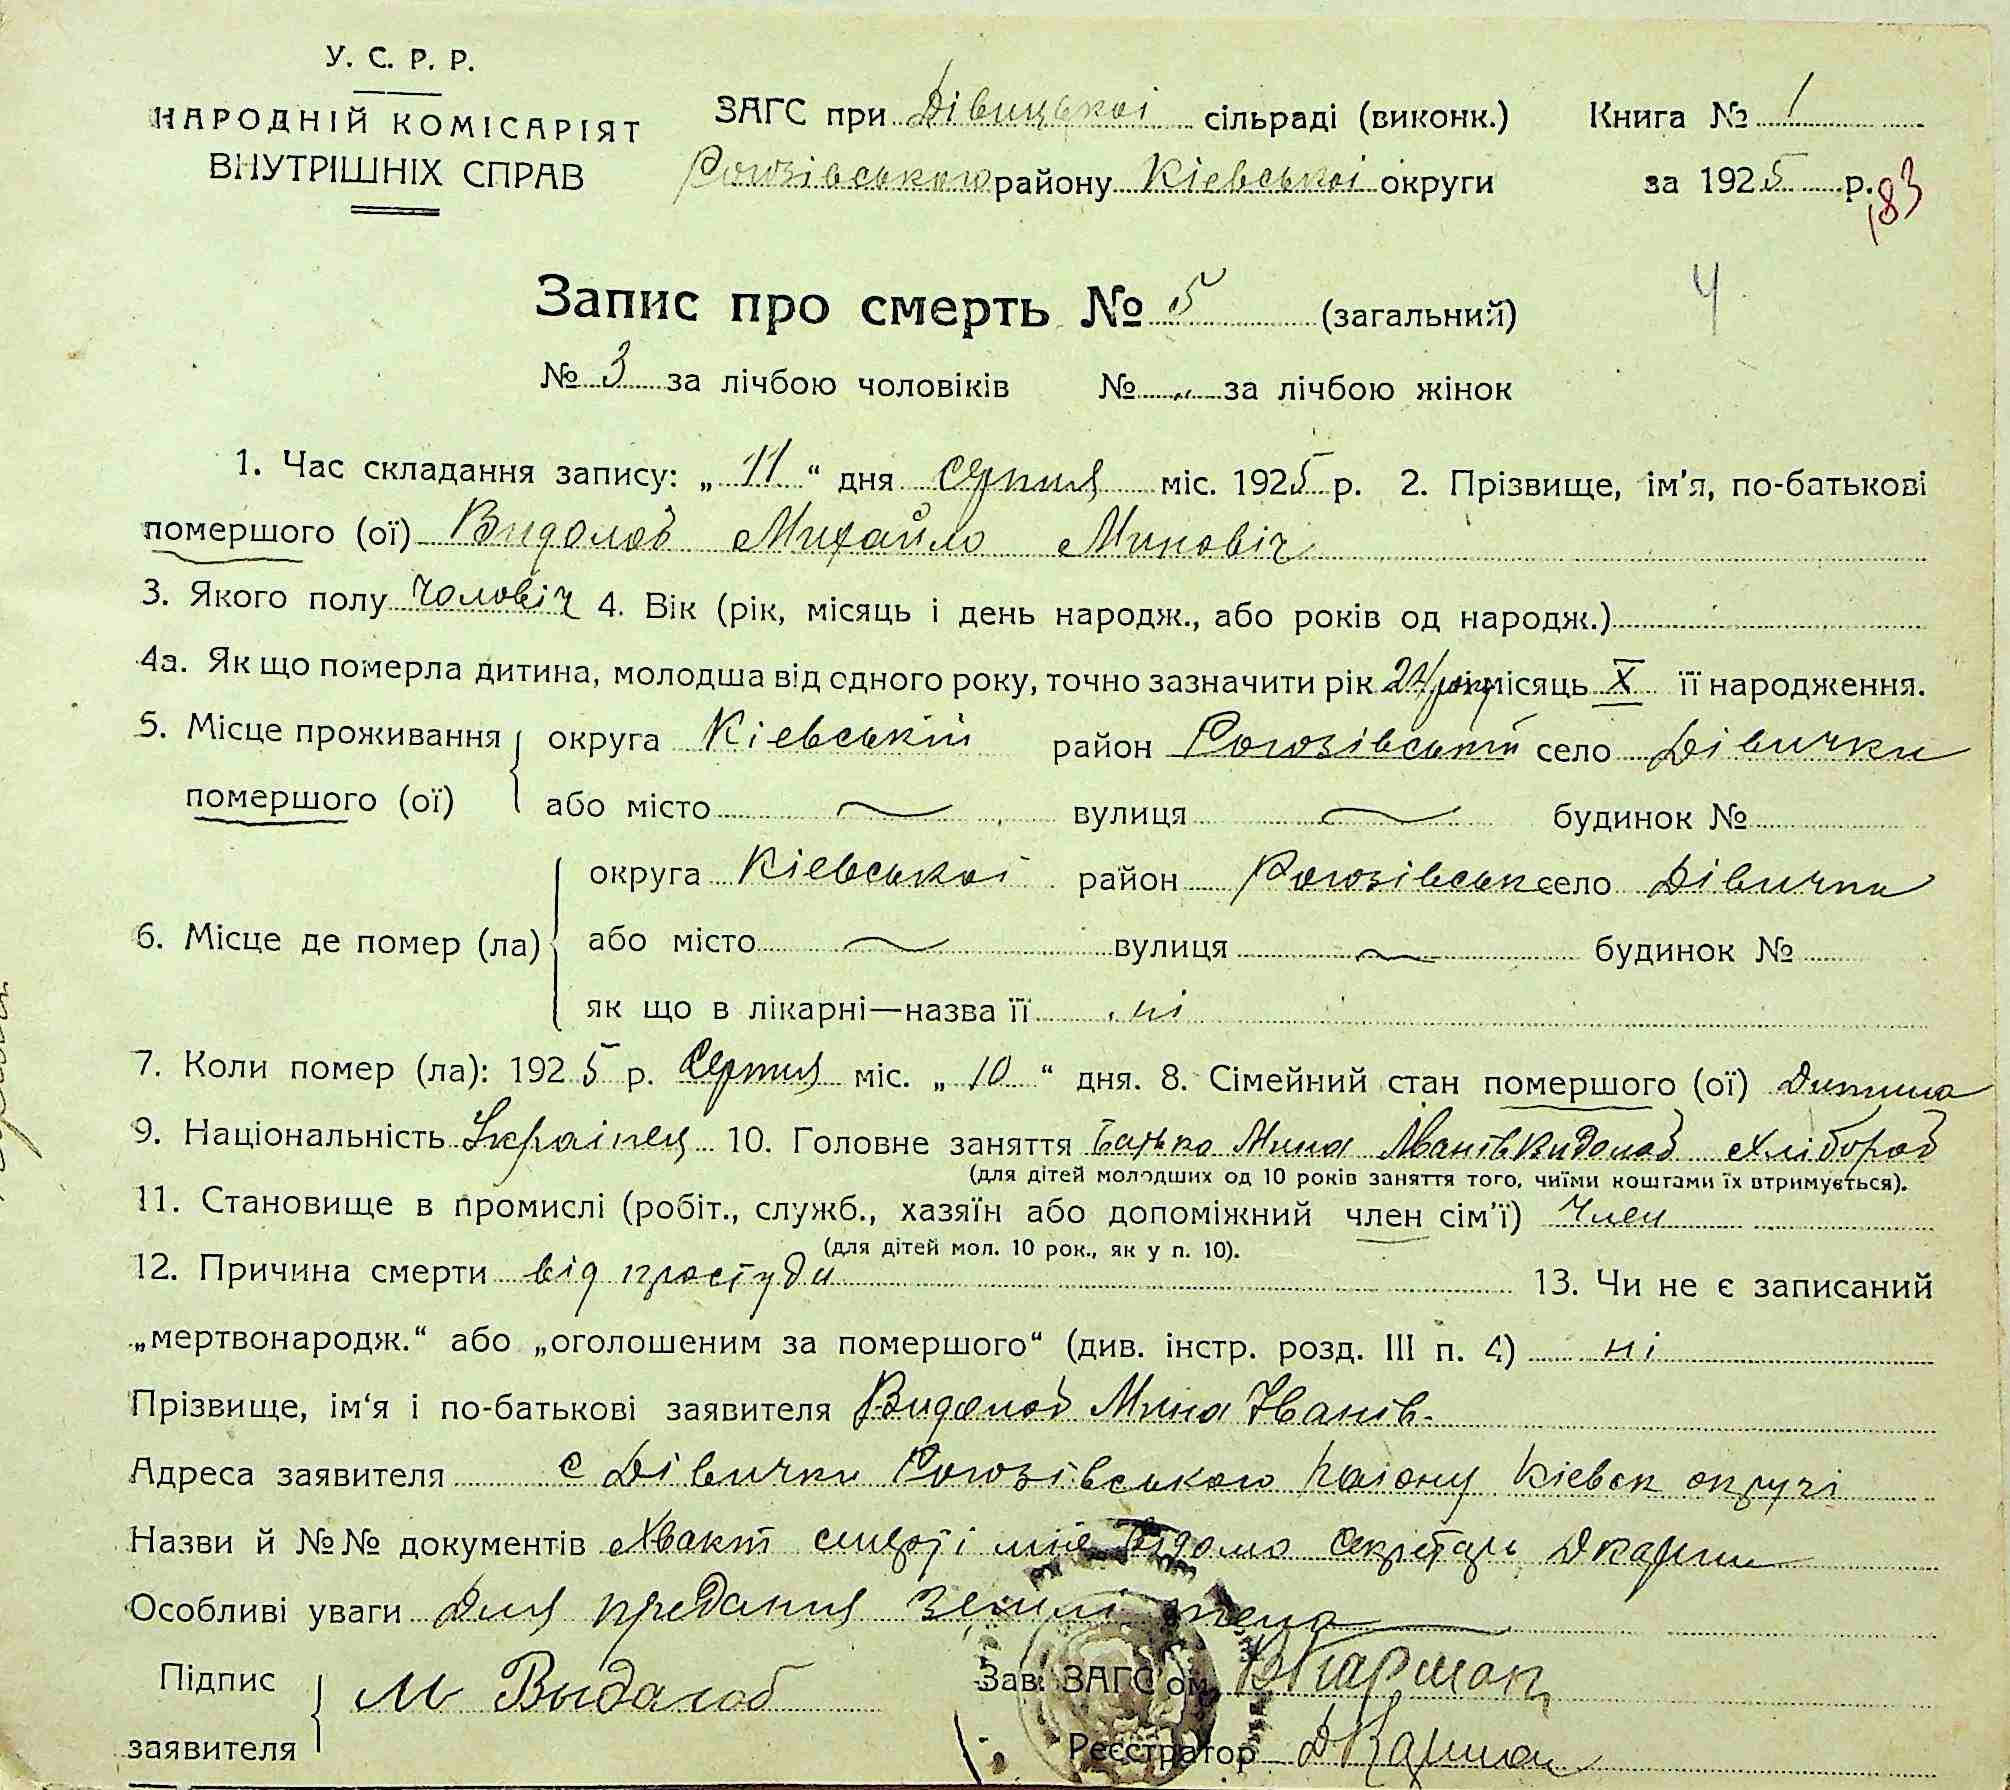 У. С. Р. Р.
НАРОДНІЙ КОМІСАРІЯТ
ВНУТРІШНІХ СПРАВ
ЗАГС при Дівицькоі сільраді (виконк.) Книга № 1
Рогозівського району Кіевськоі округи за 1925 р.
183
4
Запис про смерть № 5 (загальний)
№ 3 за лічбою чоловіків № „ за лічбою жінок
1. Час складання запису: „ 11 “ дня Серпня міс. 1925 р. 2. Прізвище, ім'я, по-батькові
помершого (ої) Видолоб Михайло Миновіч
3. Якого полу Чоловіч 4. Вік (рік, місяць і день народж., або років од народж.)
4а. Як що померла дитина, молодша від одного року, точно зазначити рік 24 місяць X її народження.
5. Місце проживання помершого (ої) округа Кіевський район Рогозівський село Дівички
або місто вулиця будинок №
6. Місце де помер (ла) округа Кіевськоі район Рогозівськ село Дівички
або місто вулиця будинок №
як що в лікарні—назва її ні
7. Коли помер (ла): 1925 р. Серпня міс. „ 10 “ дня. 8. Сімейний стан помершого (ої) Дитина
9. Національність Украінец 10. Головне заняття Батько Мина Іванів Видолоб Хлібороб
(для дітей молодших од 10 років заняття того, чиїми коштами їх втримується).
11. Становище в промислі (робіт., служб., хазяїн або допоміжний член сім'ї) Член
(для дітей мол. 10 рок., як у п. 10).
12. Причина смерти від простуди 13. Чи не є записаний
„мертвонародж.“ або „оголошеним за помершого“ (див. інстр. розд. III п. 4) ні
Прізвище, ім‘я і по-батькові заявителя Видолоб Мина Іванів.
Адреса заявителя с Дівички Рогозівського Району Кіевск округі
Назви й №№ документів Хвакт смерті міні відомо Секрітарь
Особливі уваги Для предания землі тела
Підпис заявителя М Выдалоб
Зав. ЗАГС'ом
Реєстратор